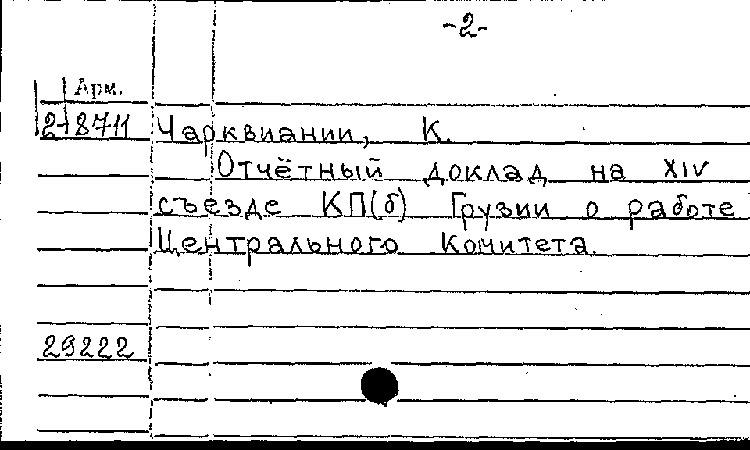 -2-
Арм.
2-8711
Чарквиании, К.
Отчётный доклад на XIV
съезде КП(б) Грузии о работе
Центрального Комитета.
29222